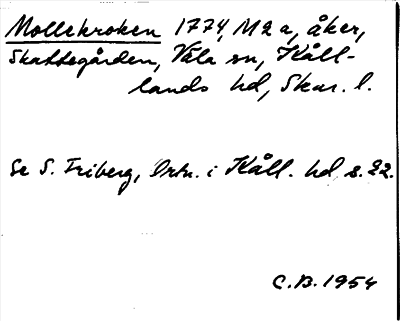 Mollekroken 1774, M2a, åker,
Skattegården, Väla sn, Kåll-
lands hd, Skar. l.
Se S. Friberg, Ortn. i Kåll. hd s. 22.
C.B. 1954